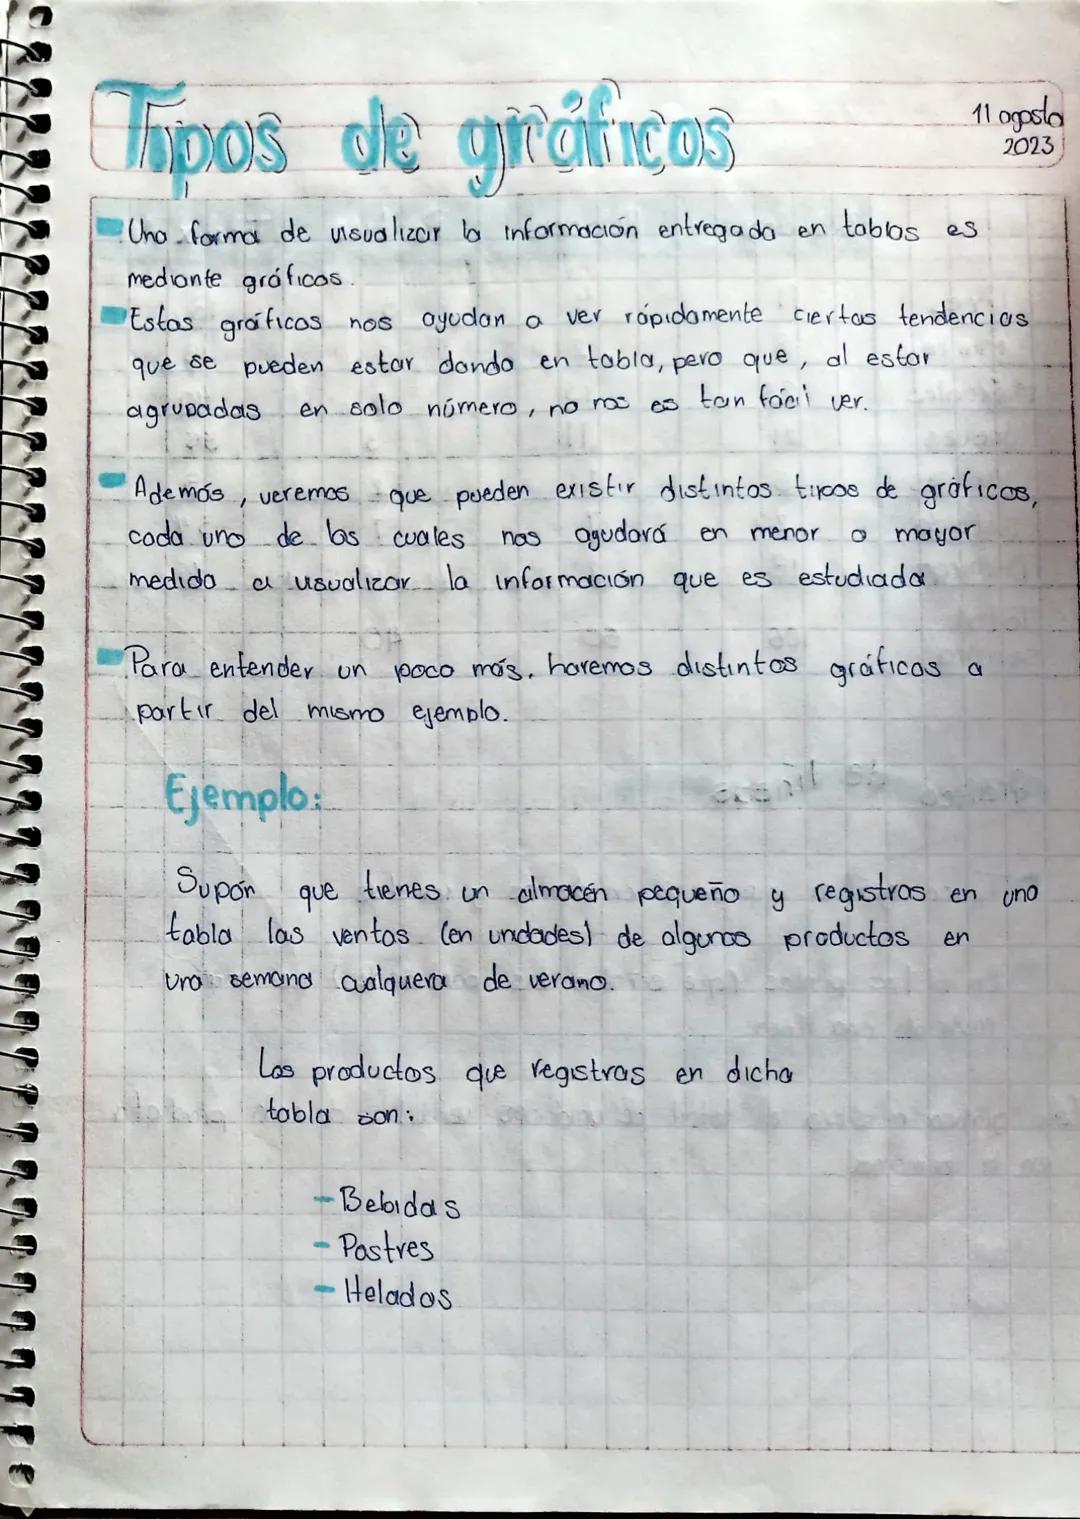 Tipos de gráficos
11 agosto
2023
Una forma de visualizar la información entregada en tablas es
mediante gráficos.
Estas gráficos nos ayudan a ver rápidamente ciertas tendencias
que se pueden estar dando en tabla, pero que, al estar
agrupadas en solo número, no nos es tan fácil ver.
Además, veremos que pueden existir distintos tipos de gráficos,
cada uno de los cuales nos ayudará en menor o mayor
medida a visualizar la información que es estudiada
Para entender un poco más, haremos distintos gráficos a
partir del mismo ejemplo.
Ejemplo:
Supón que tienes un almacén pequeño y registras en una
tabla las ventas (en unidades) de algunos productos en
una semana cualquera de verano.
Los productos que registras en dicha
tabla son:
- Bebidas
- Postres
- Helados